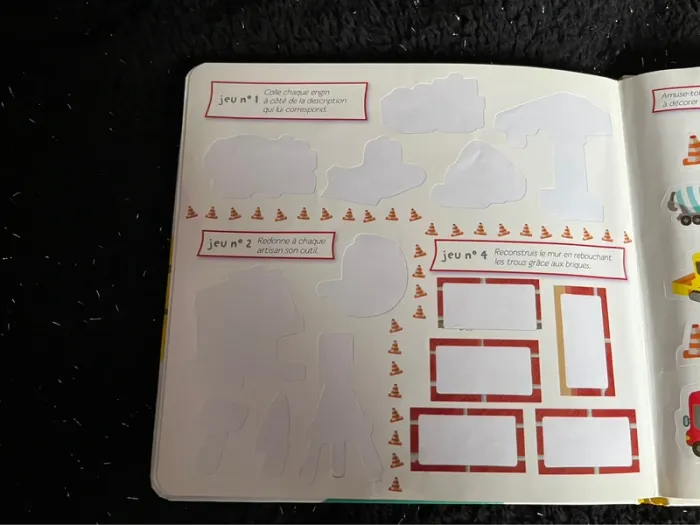 jeu n° 1
Colle chaque engin
à côté de la description
qui lui correspond.
jeu n° 2
Redonne à chaque
artisan son outil.
jeu n° 4
Reconstruis le mur en rebouchant
les trous grâce aux briques.
à décorer